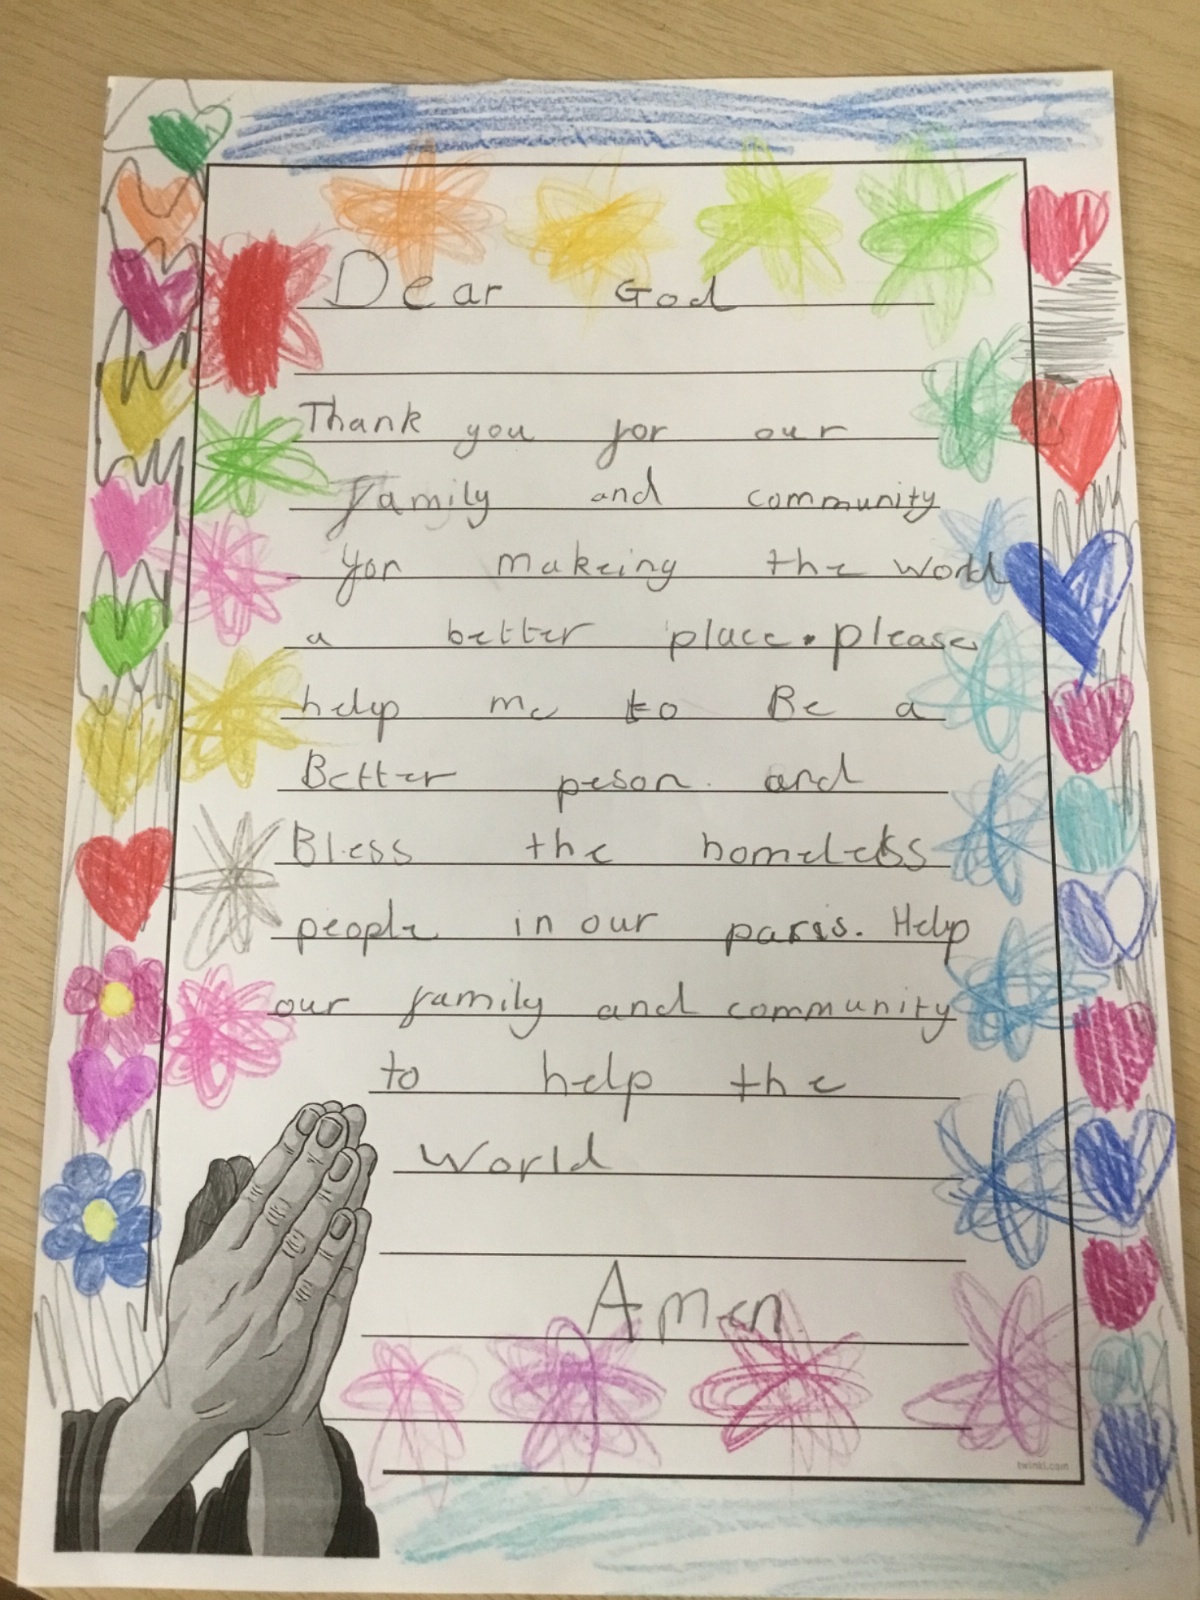 Dear God
Thank you for our
family and community
for makeing the world
a better place. please
help me to Be a
Better peson. and
Bless the homeless
people in our paris. Help
our family and community
to help the
World
Amen
twinkl.com